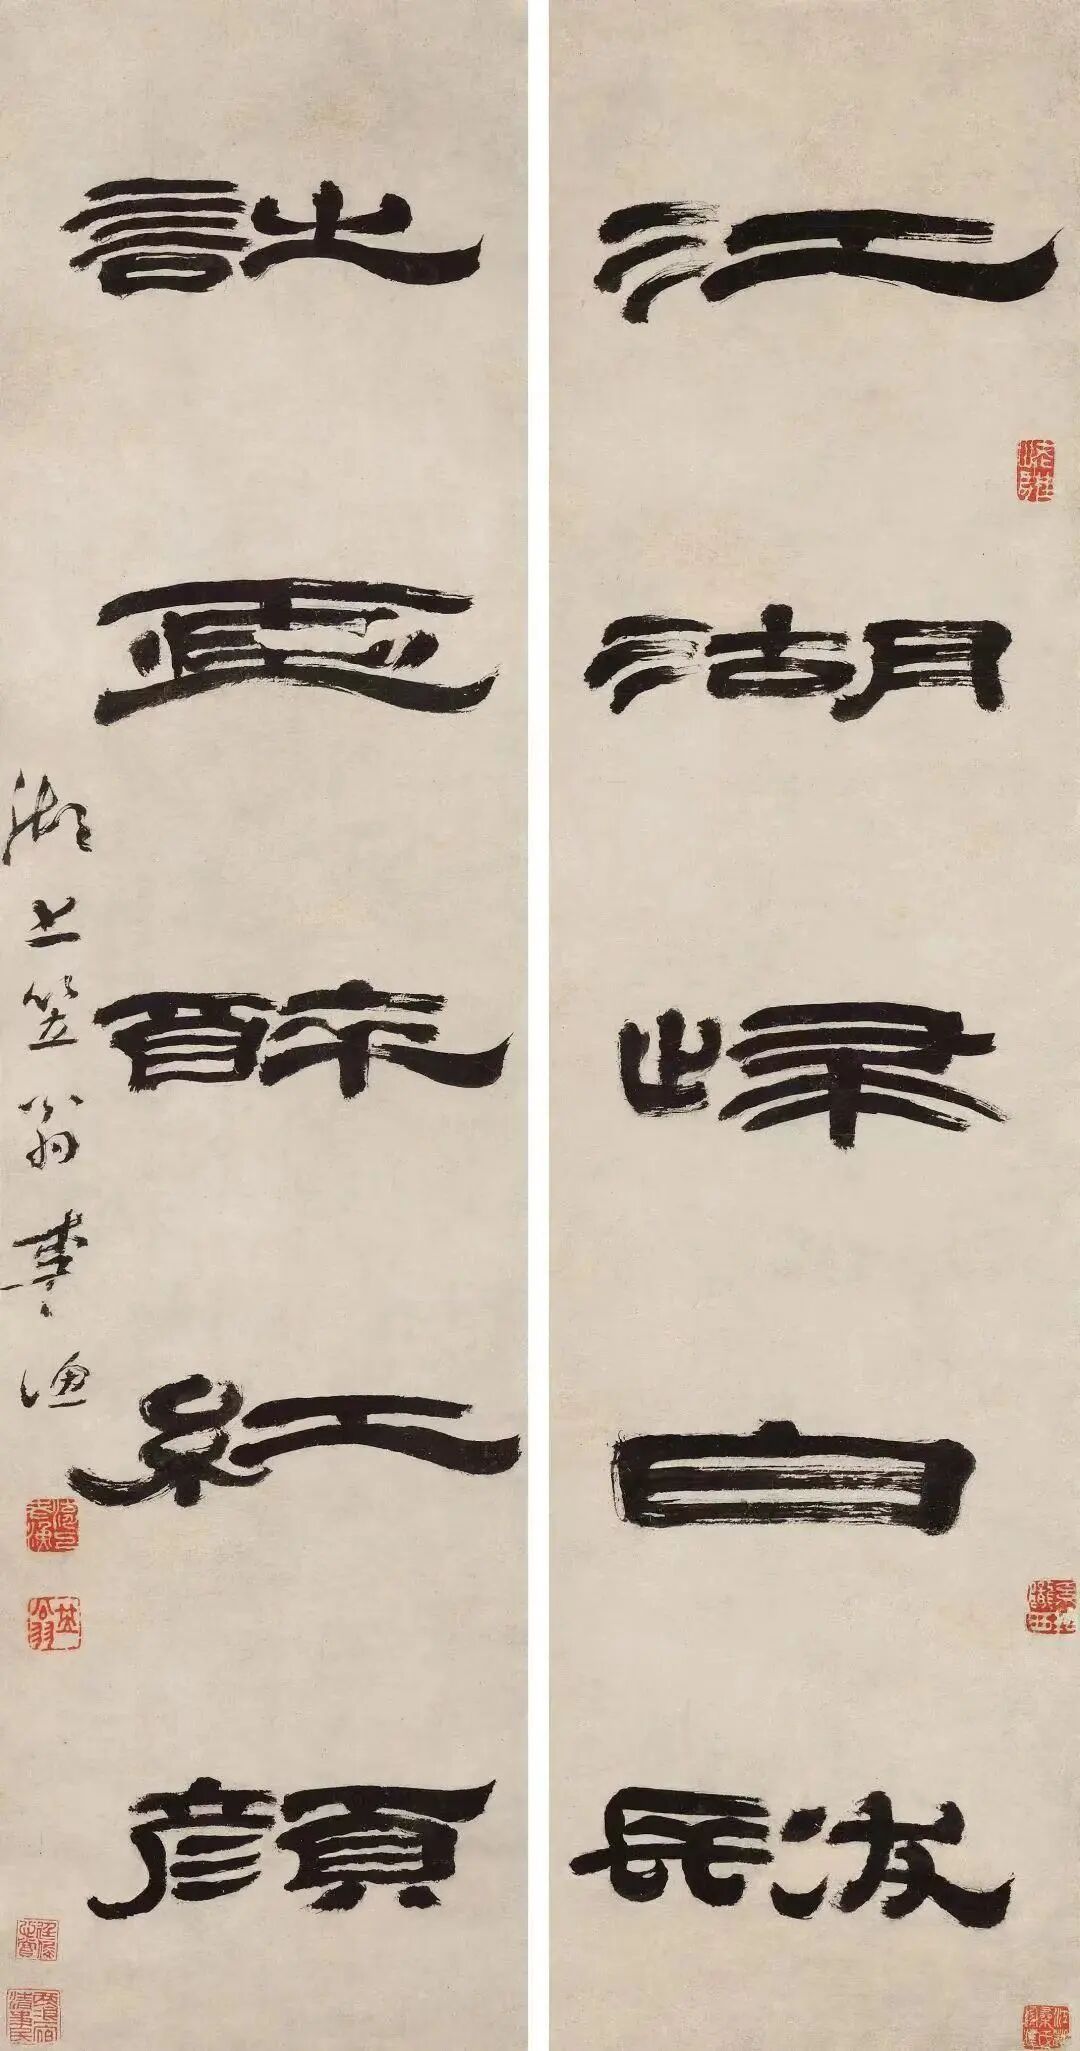 江湖歸白髮
詩畫醉紅顏
湖上笠翁李漁